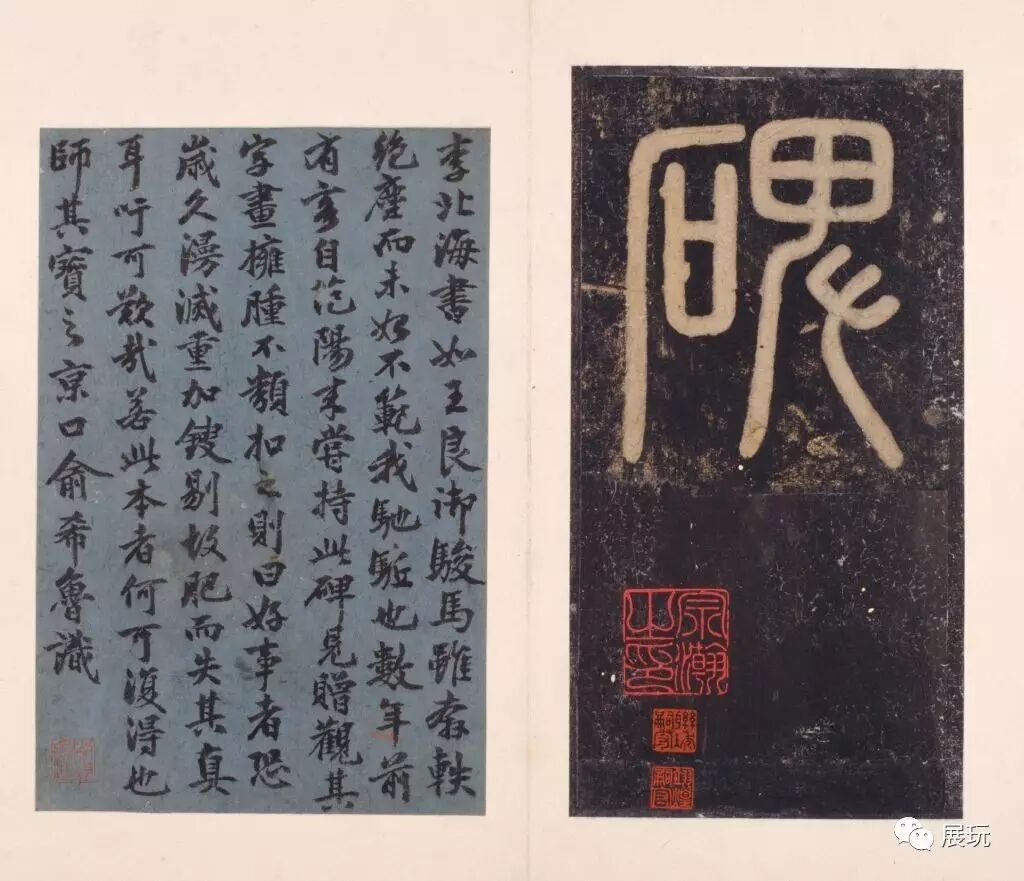 碑
宗瀚之印
李北海書如王良御駿馬雖奔軼
絶塵而未始不範我馳駈也數年前
有客自范陽来嘗持此碑見贈觀其
字畫擁腫不類扣之則曰好事者恐
歲久漫滅重加鋟剔故肥而失其真
耳吁可歎哉若此本者何可復得也
師其寶之京口俞希魯識
展玩